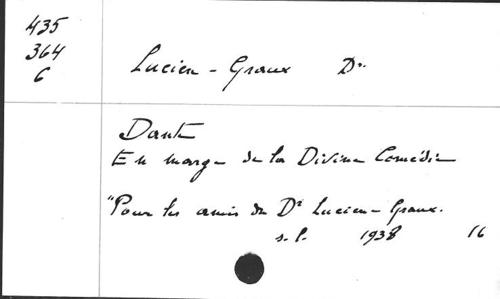 435
364
6
Lucien-Graux Dr.
Dante
En marge de la Divine Comédie
"Pour les amis du Dr Lucien-Graux.
s.l. 1938 16